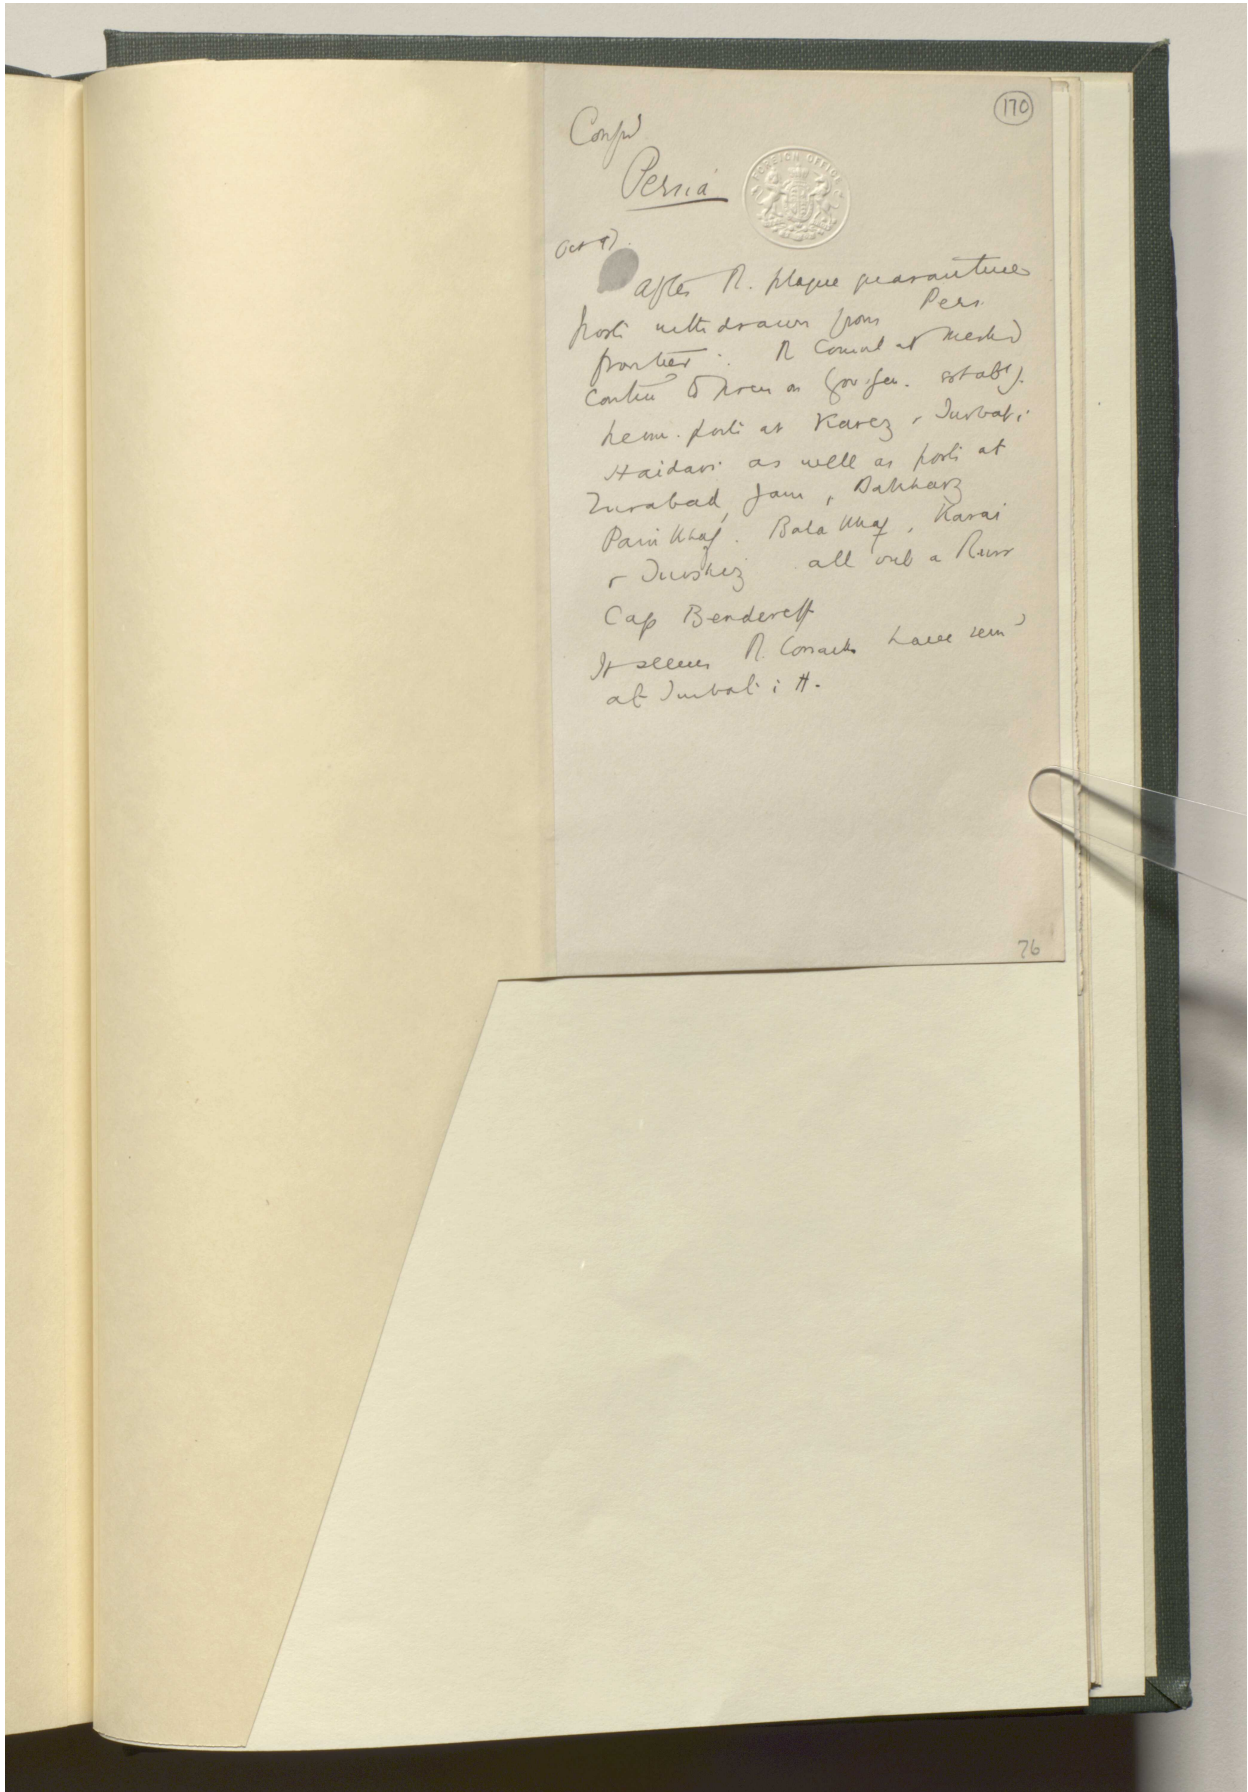 170
Confid
Persia
FOREIGN OFFICE
Oct 97.
After R. plague quarantine
posts withdrawn from Pers.
frontier. R Consul at Meshd
to press on Gov Gen. establ.
perm. posts at Karez, Turbat i
Haidari as well as posts at
Zurabad, Jam, Bakharz
Pain Khaf. Bala Khaf, Karai
& Turshiz all under a Russ
Cap Bendereff
It seems R. Cossacks have remd
at Turbat i H.
76